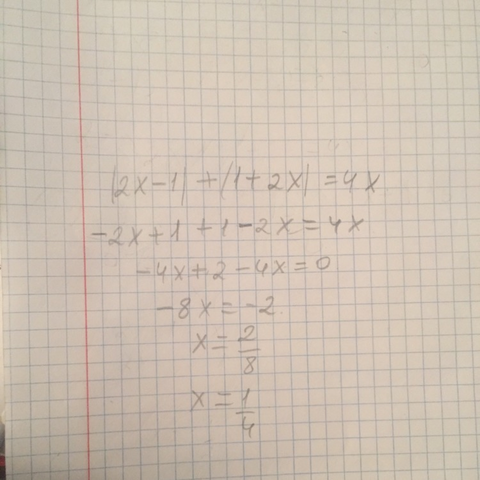 |2x-1| + |1+2x| = 4x
-2x+1 +1-2x=4x
-4x+2-4x=0
-8x=-2
x=2/8
x=1/4